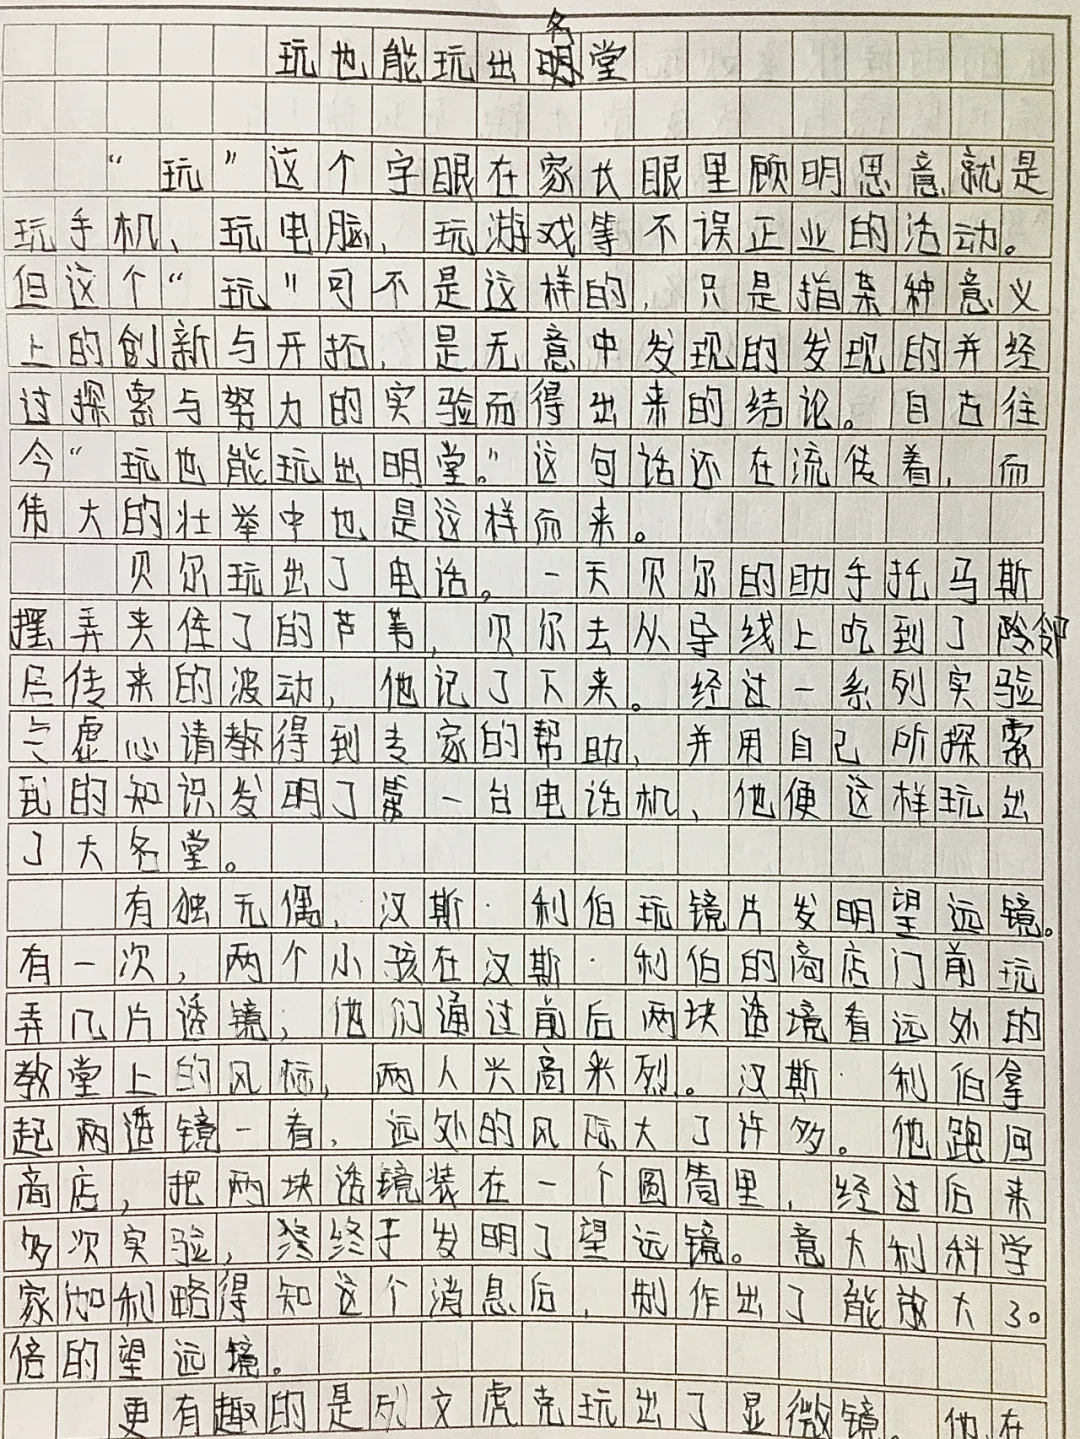 玩也能玩出名堂
“玩”这个字眼在家长眼里顾明思意就是
玩手机、玩电脑、玩游戏等不误正业的活动。
但这个“玩”可不是这样的，只是指某种意义
上的创新与开拓，是无意中发现的发现的并经
过探索与努力的实验而得出来的结论。自古往
今“玩也能玩出明堂。”这句话还在流传着，而
伟大的壮举中也是这样而来。
贝尔玩出了电话。一天贝尔的助手托马斯
摆弄夹住了的芦苇，贝尔去从导线上吃到了邻
居传来的波动，他记了下来。经过一系列实验
与虚心请教得到专家的帮助，并用自己所探索
到的知识发明了第一台电话机、他便这样玩出
了大名堂。
有独无偶，汉斯·利伯玩镜片发明望远镜。
有一次，两个小孩在汉斯·利伯的商店门前玩
弄几片透镜，他们通过前后两块透境看远处的
教堂上的风标，两人兴高采烈。汉斯·利伯拿
起两透镜一看，远处的风标大了许多。他跑回
商店，把两块透镜装在一个圆筒里，经过后来
多次实验，终于发明了望远镜。意大利科学
家伽利略得知这个消息后，制作出了能放大30
倍的望远镜。
更有趣的是列文虎克玩出了显微镜。他在